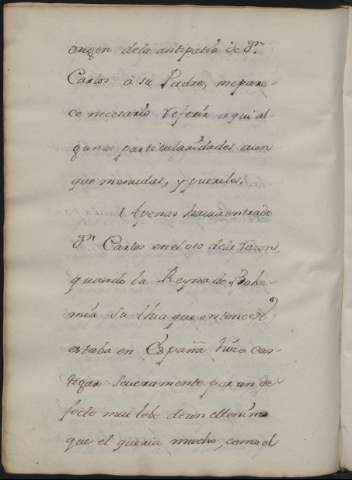 origen dela antipatia de Dn.
Carlos á su Padre, mepare-
ce necesario referir aqui al-
gunas particularidades aun
que menudas, y pueriles.
Apenas havia entrado
Dn. Carlos en el uso dela razon,
quando la Reyna de Bohe-
mia su thia que entonces
estaba en España hizo cas-
tigar severamente por un de-
fecto mui lebe de un
que el queria mucho, como el